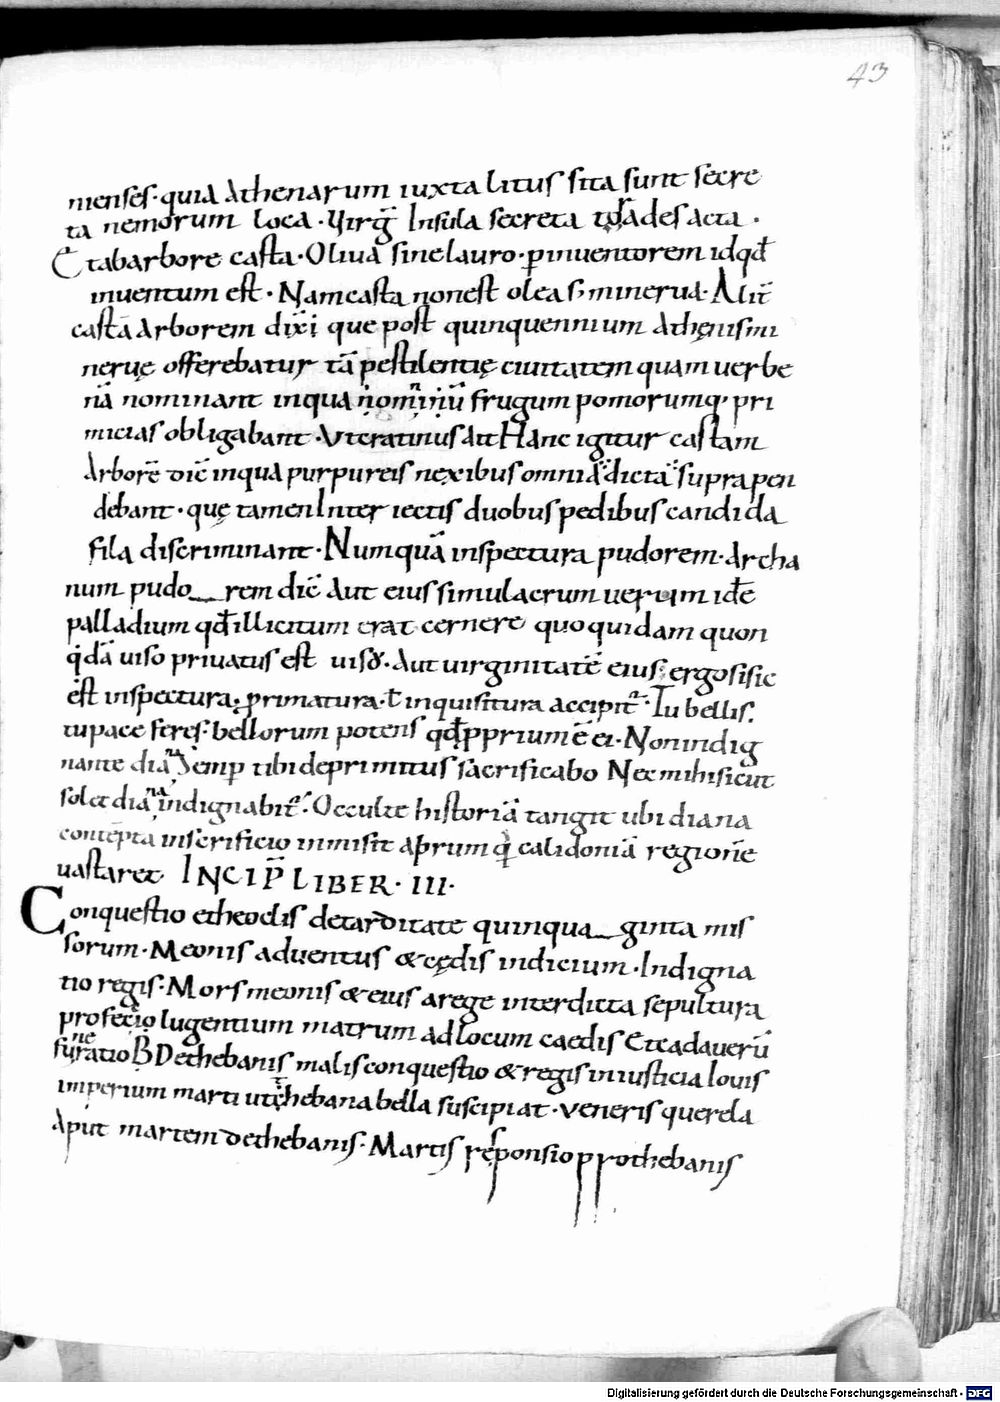 43
nienses· quia Athenarum iuxta litus sita sunt secre
ta nemorum loca · Virḡ Insula secreta
Et ab arbore casta · Oliua sine lauro · ꝑ inuentorem id qđ
inuentum est · Nam casta non est olea s; minerua· Alit̄
castā Arborem dixi que post quinquennium Athęnis mi
neruę offerebatur tā pestilentię ciuitatem quam uerbe
nā nominant inqua frugum pomorumq; pri
micias obligabant · Vt cratinus Ait Hanc igitur castam
Arborē dic̄ inqua purpureis nexibus omnia dicta suprapen
debant · quę tamen Inter iectis duobus pedibus candida
fila discriminant · Numquā inspectura pudorem· Archa
num pudo__rem dic̄ Aut eius simulacrum uerum idē
palladium qđ illicitum erat cernere quo quidam quon
dā uiso priuatus est uisu · Aut uirginitatē eius; ergo si sic
est inspectura, ꝑ rimatura · ł inquisitura accipit᷑· Tu bellis.
tu pace feres· bellorum potens qđ ꝓprium ē ei · Non indig
nante diana Semꝑ tibi deprimitus sacrificabo Nec mihi sicut
solet diana indignabit᷑· Occulte historiā tangit ubi diana
contēpta in scrificio inmisit aprum q̇ calidoniā regionē
uastaret· INCIP̄ LIBER · III·
Conquestio etheoclis detarditate quinqua__ginta mis
sorum · Meonis aduentus & cędis indicium · Indigna
tio regis· Mors meonis & eius arege interdicta sepultura
profectio lugentium matrum ad locum caedis Et cadauerū
Dethebanis malis conquestio & regis iniusticia Iouis
imperium marti ut thebana bella suscipiat · Veneris querela
Aput martem dethebanis· Martis responsio pro thebanis
Digitalisierung gefördert durch die Deutsche Forschungsgemeinschaft - DFG